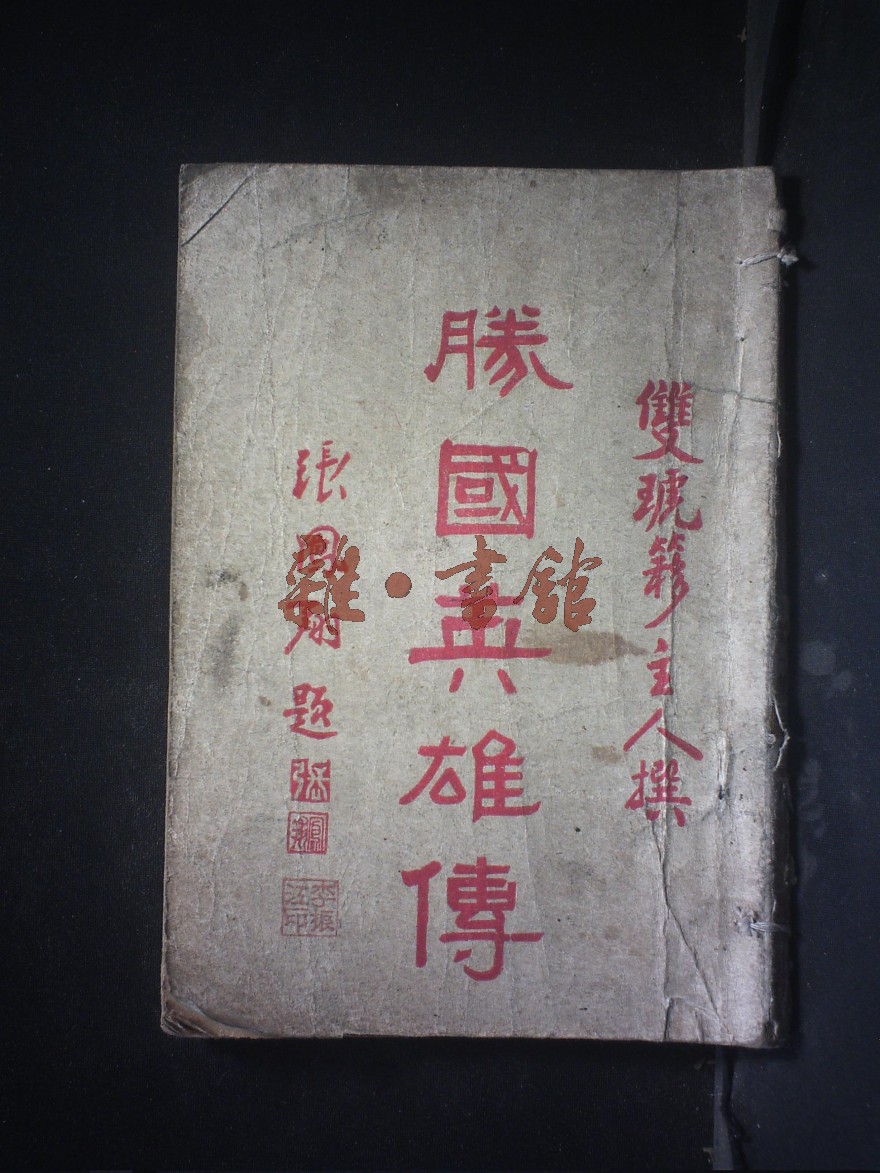 雙琥簃主人撰
勝國英雄傳
張鳳翔題
張
鳳翔
李張
江印
雜·書館